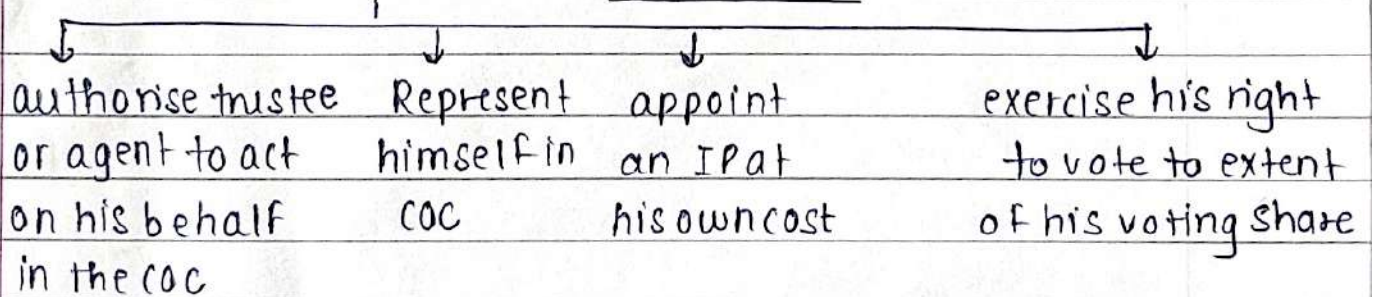 authorise trustee
or agent to act
on his behalf
in the COC
Represent
himself in
COC
appoint
an IP at
his own cost
exercise his right
to vote to extent
of his voting share